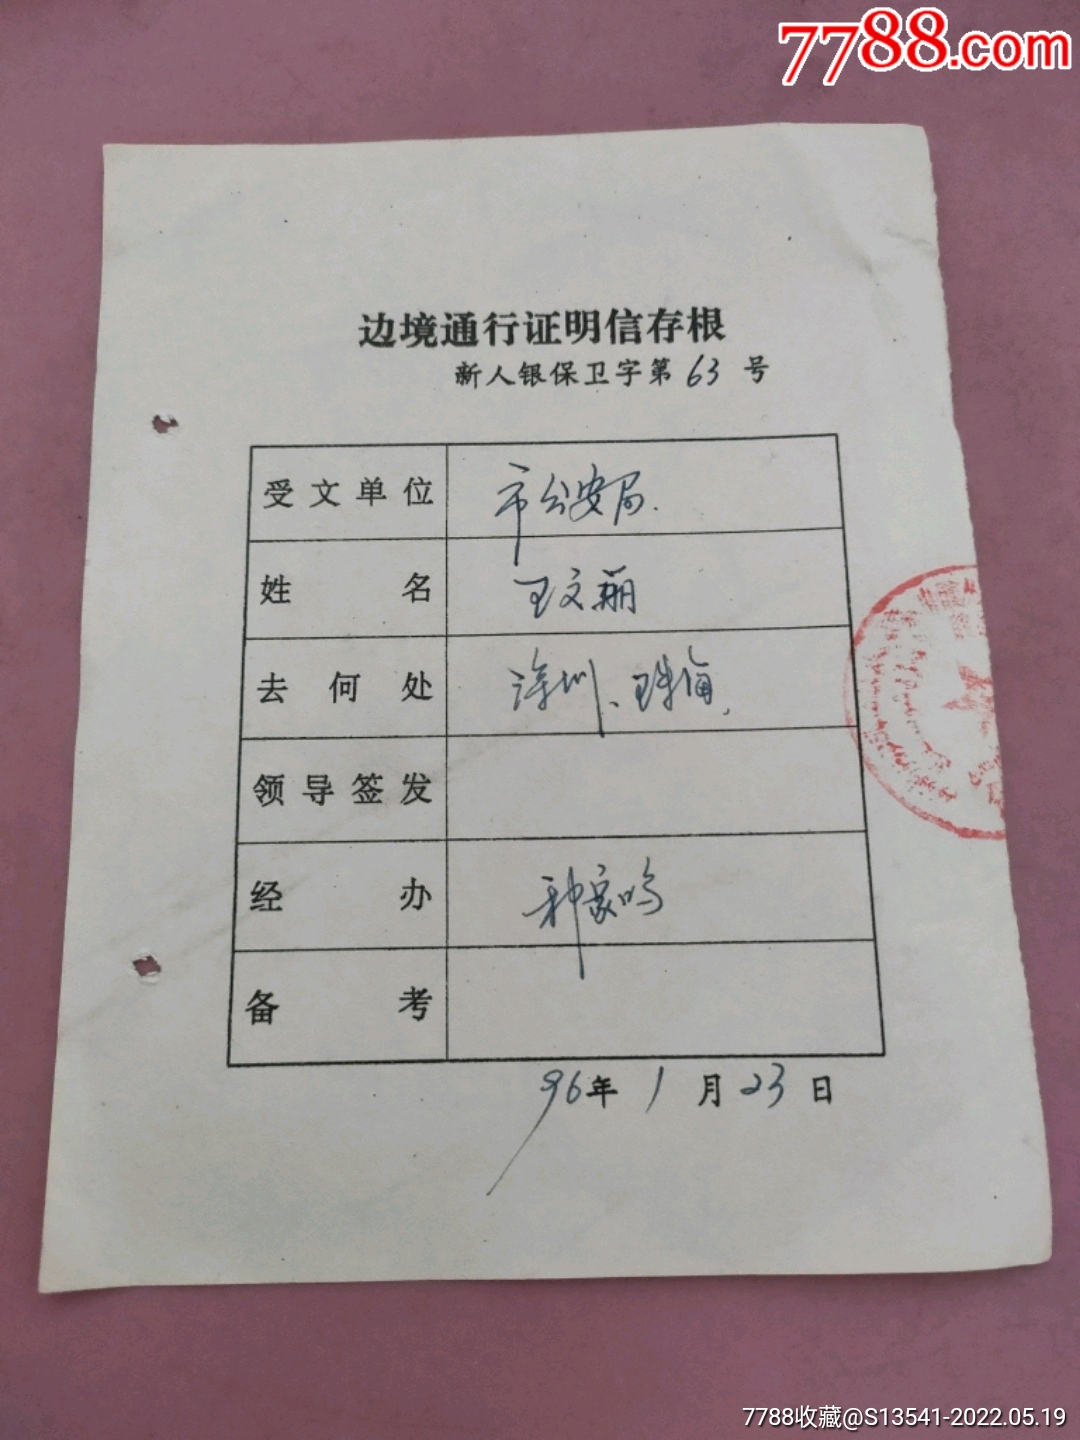 7788.com
边境通行证明信存根
新人银保卫字第63号
受文单位 市公安局.
姓名 王文丽
去何处 深圳、珠海,
领导签发
经办 种家鸣
备考
96年1月23日
7788收藏@S13541-2022.05.19